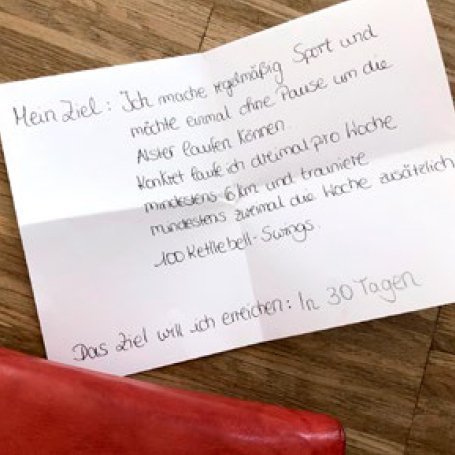 Mein Ziel: Ich mache regelmäßig Sport und
möchte einmal ohne Pause um die
Alster laufen können.
Konkret laufe ich dreimal pro Woche
mindestens 6 km und trainiere
mindestens zweimal die Woche zusätzlich
100 Kettlebell-Swings.
Das Ziel will ich erreichen: In 30 Tagen